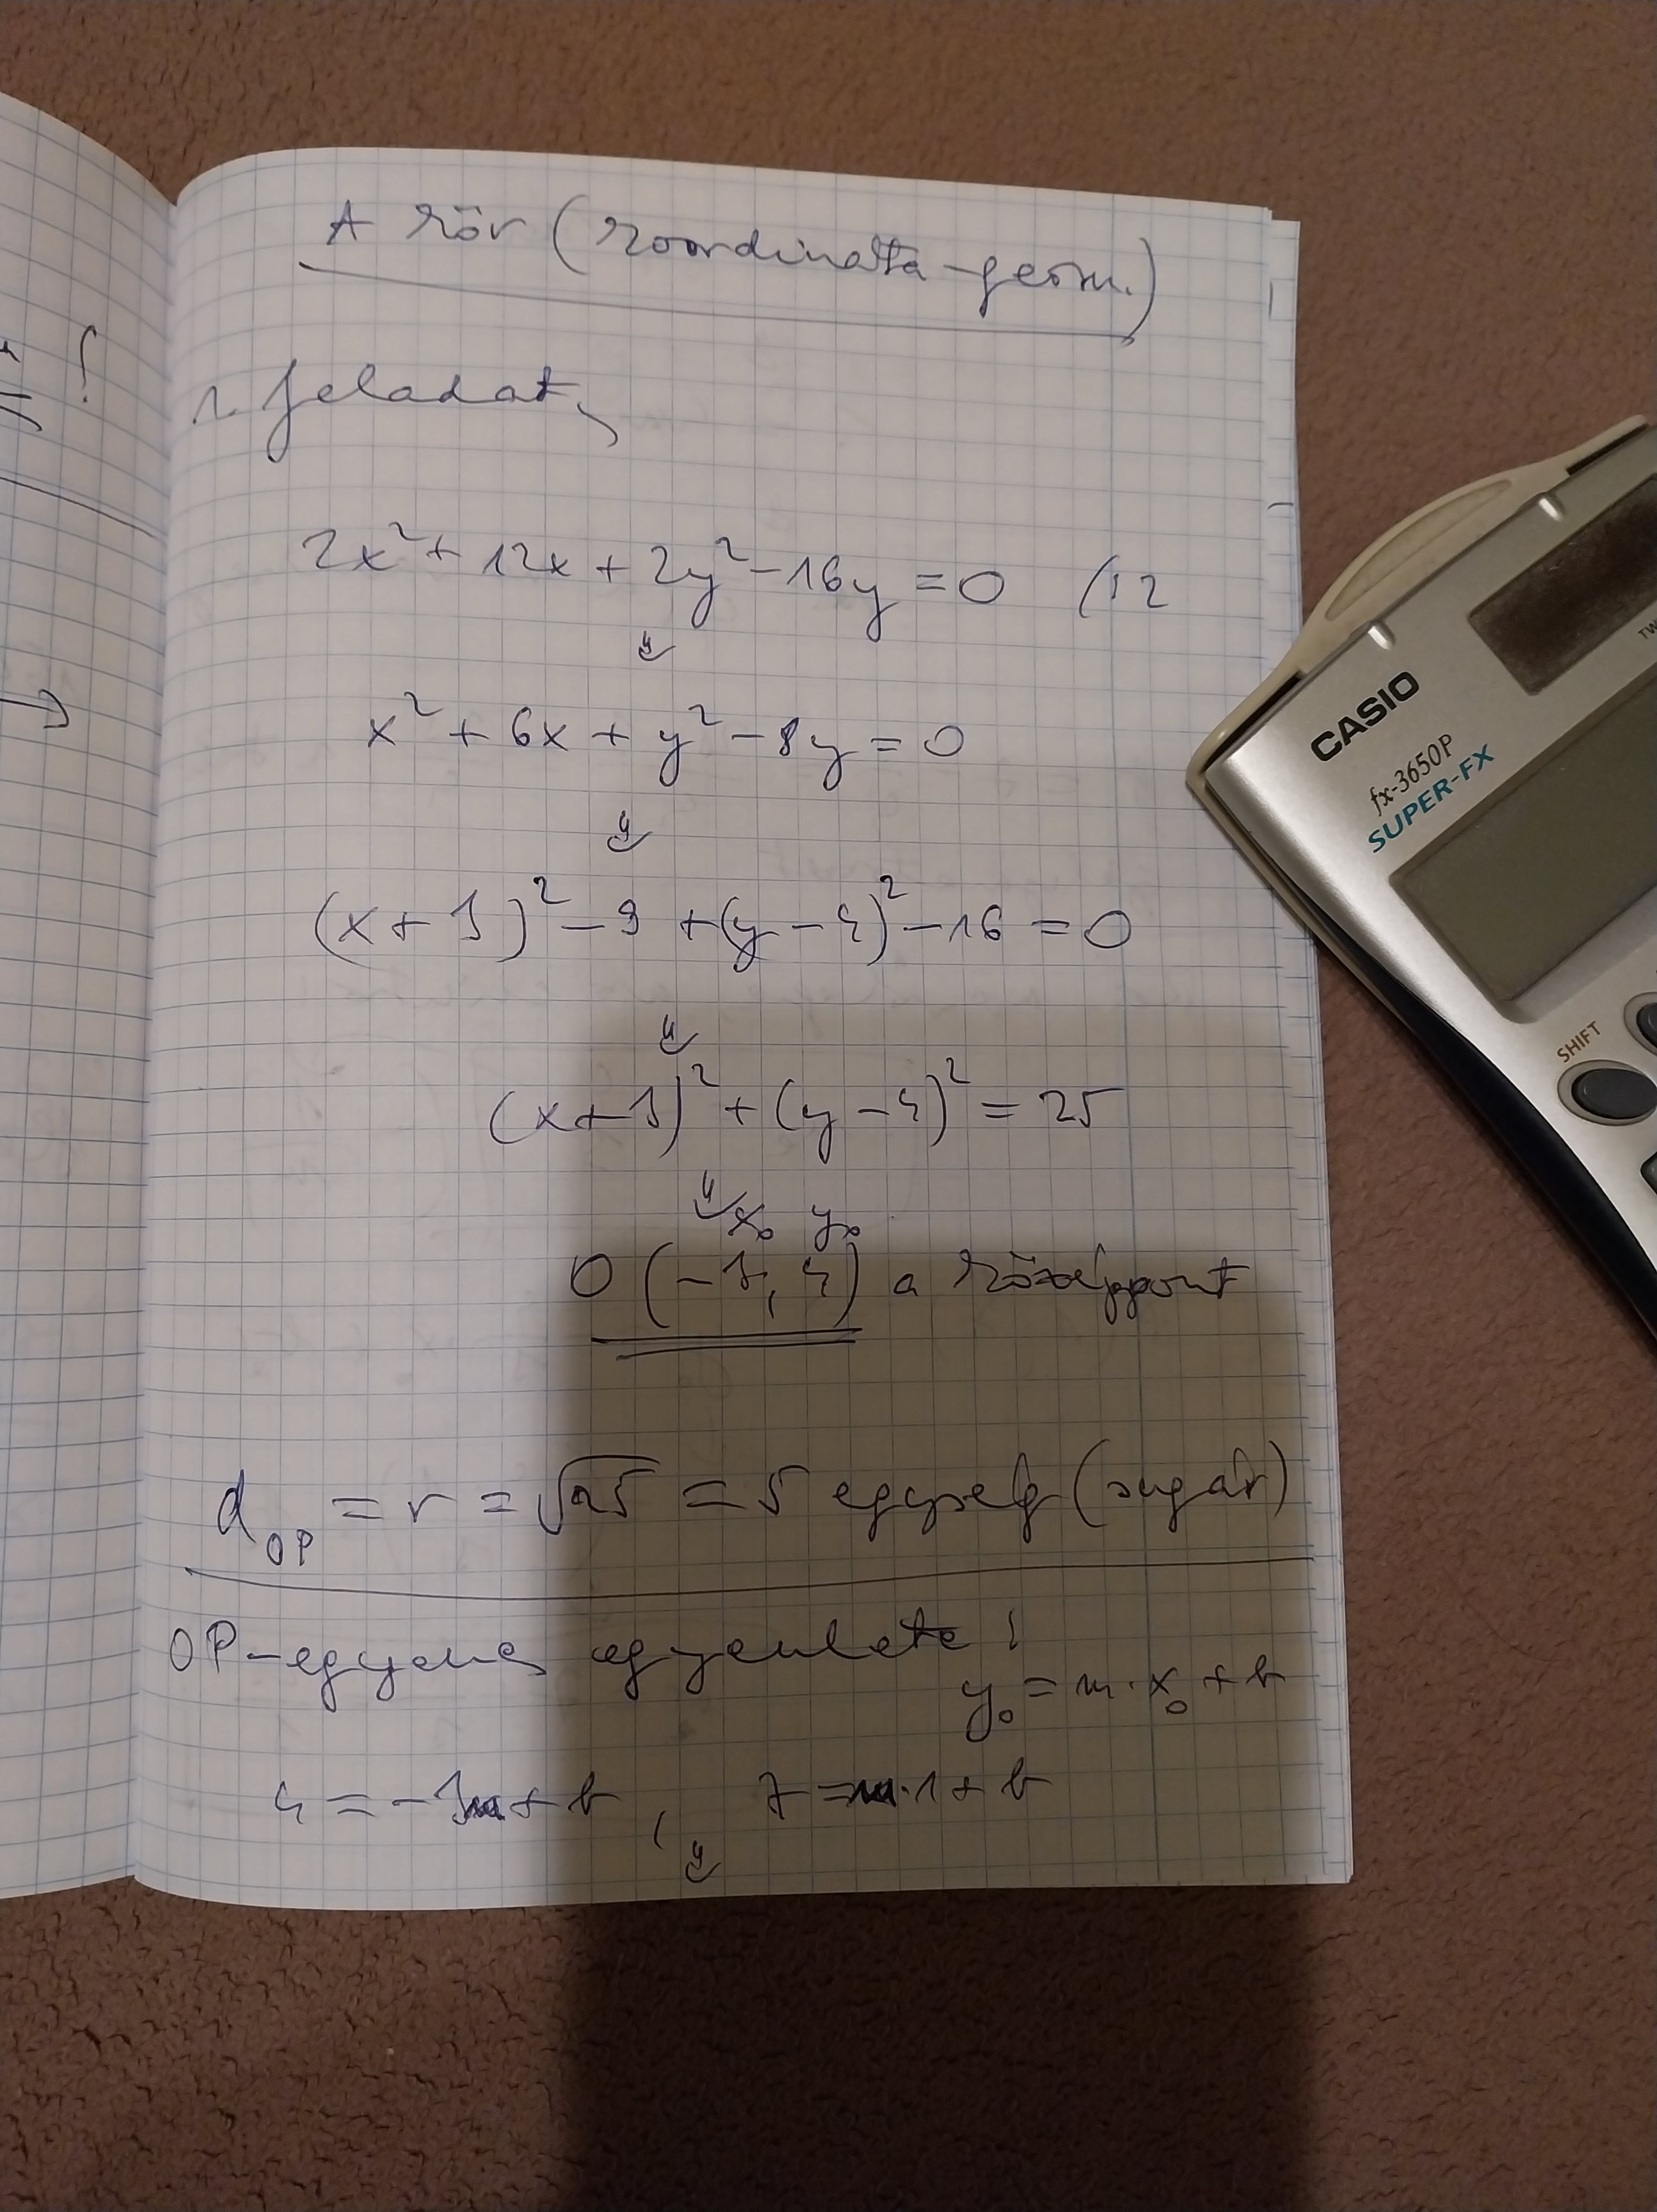 A kör (koordináta-geom.)
1. feladat,
2x² + 12x + 2y² - 16y = 0 (:2
x² + 6x + y² - 8y = 0
(x + 3)² - 9 + (y - 4)² - 16 = 0
(x + 3)² + (y - 4)² = 25
x₀ y₀
O (-3, 4) a középpont
d_OP = r = √25 = 5 egység (sugár)
OP-egyenes egyenlete:
y₀ = m·x₀ + b
4 = -3m + b, 7 = m·1 + b
CASIO
fx-3650P
SUPER-FX
SHIFT